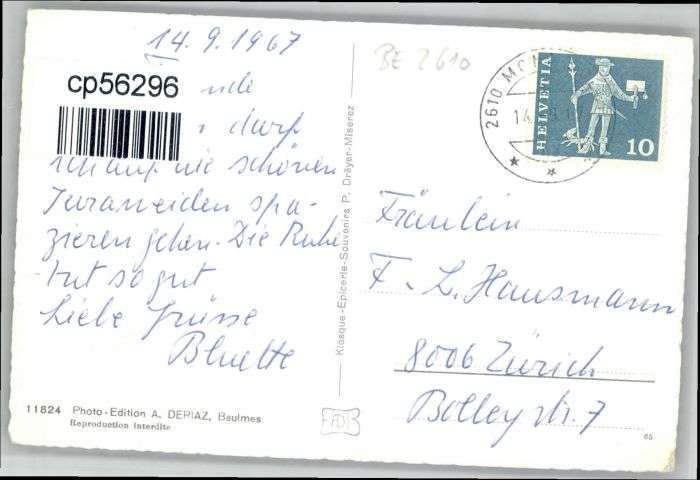 14.9.1967
cp56296
darf
ich auf die schönen
Juraweiden spa-
zieren gehen. Die Ruhe
tut so gut
Liebe Grüsse
Bluette
11824 Photo-Edition A. DERIAZ, Baulmes
Reproduction interdite
Kiosque-Epicerie-Souvenirs P. Dräyer-Miserez
BE 2610
2610
14.
HELVETIA
10
Fräulein
F. L. Hausmann
8006 Zürich
Bolleystr. 7
65